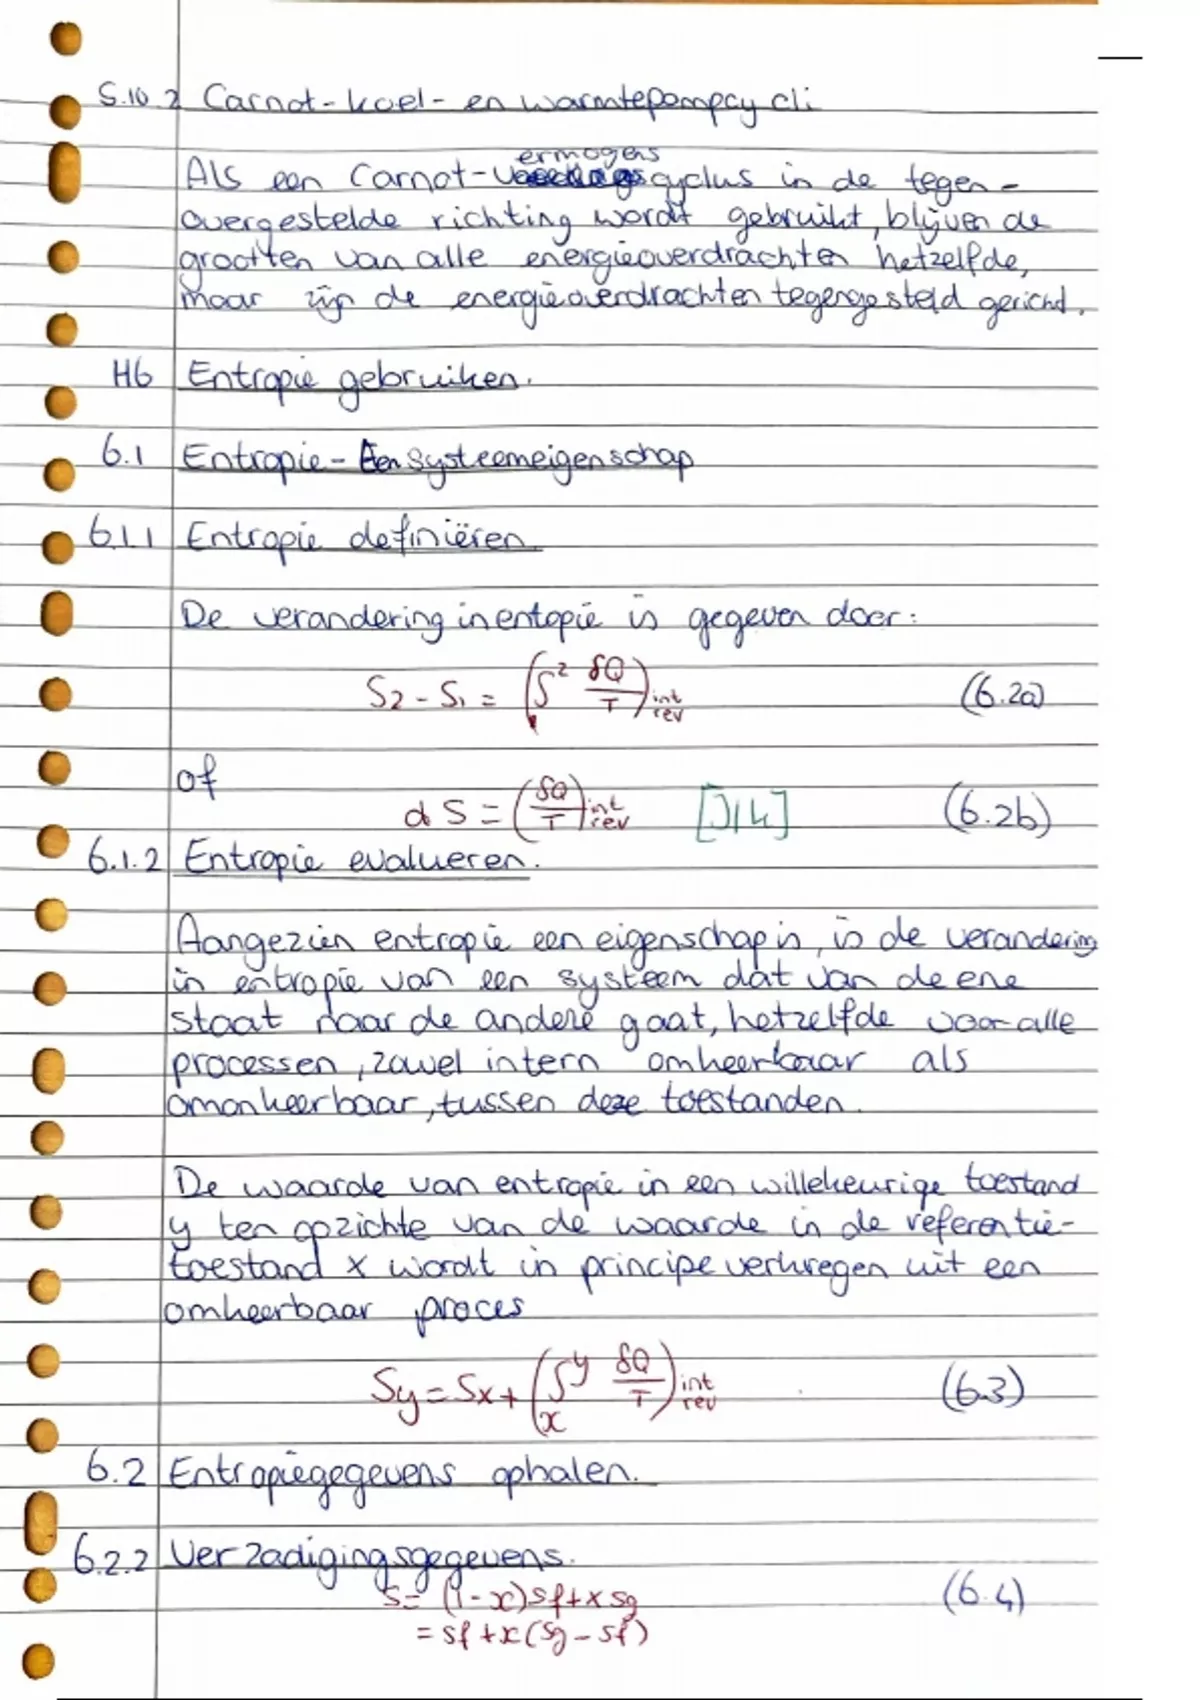 5.10.2 Carnot-koel- en warmtepompcycli
ermogens
Als een Carnot-v cyclus in de tegen-
overgestelde richting wordt gebruikt, blijven de
grootten van alle energieoverdrachten hetzelfde,
maar zijn de energieoverdrachten tegengesteld gericht.
H6 Entropie gebruiken.
6.1 Entropie - Een systeemeigenschap
6.1.1 Entropie definiëren
De verandering in entopie is gegeven door:
S2 - S1 = (∫₁² δQ/T) int rev (6.2a)
of
dS = (δQ/T) int rev [J/k] (6.2b)
6.1.2 Entropie evalueren.
Aangezien entropie een eigenschap is, is de verandering
in entropie van een systeem dat van de ene
staat naar de andere gaat, hetzelfde voor alle
processen, zowel intern omkeerbaar als
omonkeerbaar, tussen deze toestanden.
De waarde van entropie in een willekeurige toestand
y ten opzichte van de waarde in de referentie-
toestand x wordt in principe verkregen uit een
omkeerbaar proces
Sy = Sx + (∫ₓʸ δQ/T) int rev (6.3)
6.2 Entropiegegevens ophalen.
6.2.2 Verzadigingsgegevens.
s = (1-x)sf + x sg (6.4)
= sf + x(sg - sf)